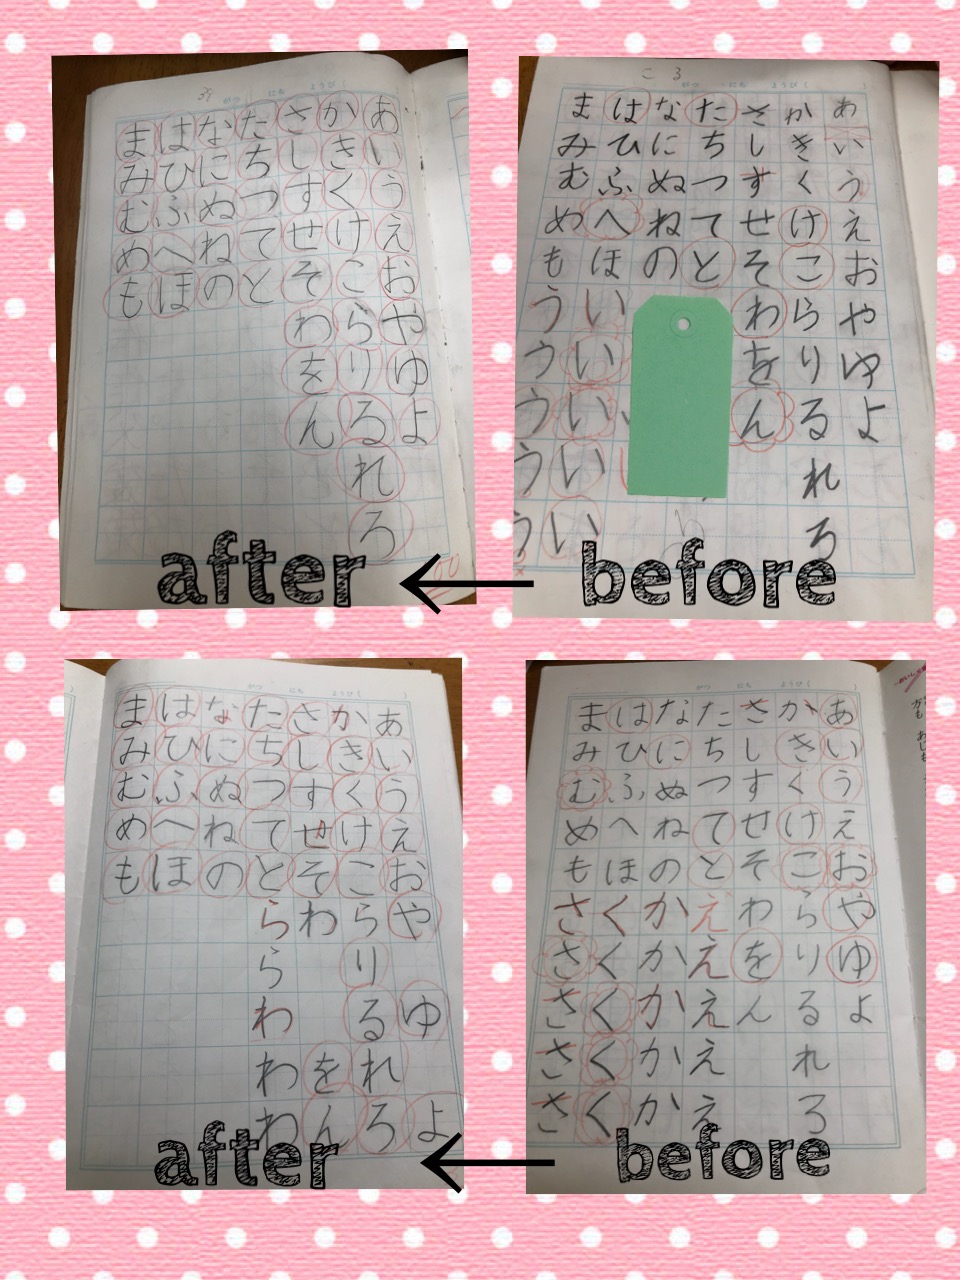 ころ
がつ にち ようび( )
あいうえおやゆよ
かきくけこらりるれろ
さしすせそわをん
たちつてと
なにぬねの
はひふへほいいいいい
まみむめもううううう
before
がつ にち ようび(
あいうえおやゆよ
かきくけこらりるれろ
さしすせそわをん
たちつてと
なにぬねの
はひふへほ
まみむめも
after
がつ にち ようび( )
あいうえおやゆよ
かきくけこらりるれろ
さしすせそわをん
たちつてとえええええ
なにぬねのかかかかか
はひふへほくくくくく
まみむめもさささささ
before
がつ にち ようび( )
あいうえおやゆよ
かきくけこらりるれろ
さしすせそわをん
たちつてとららわわわ
なにぬねの
はひふへほ
まみむめも
after